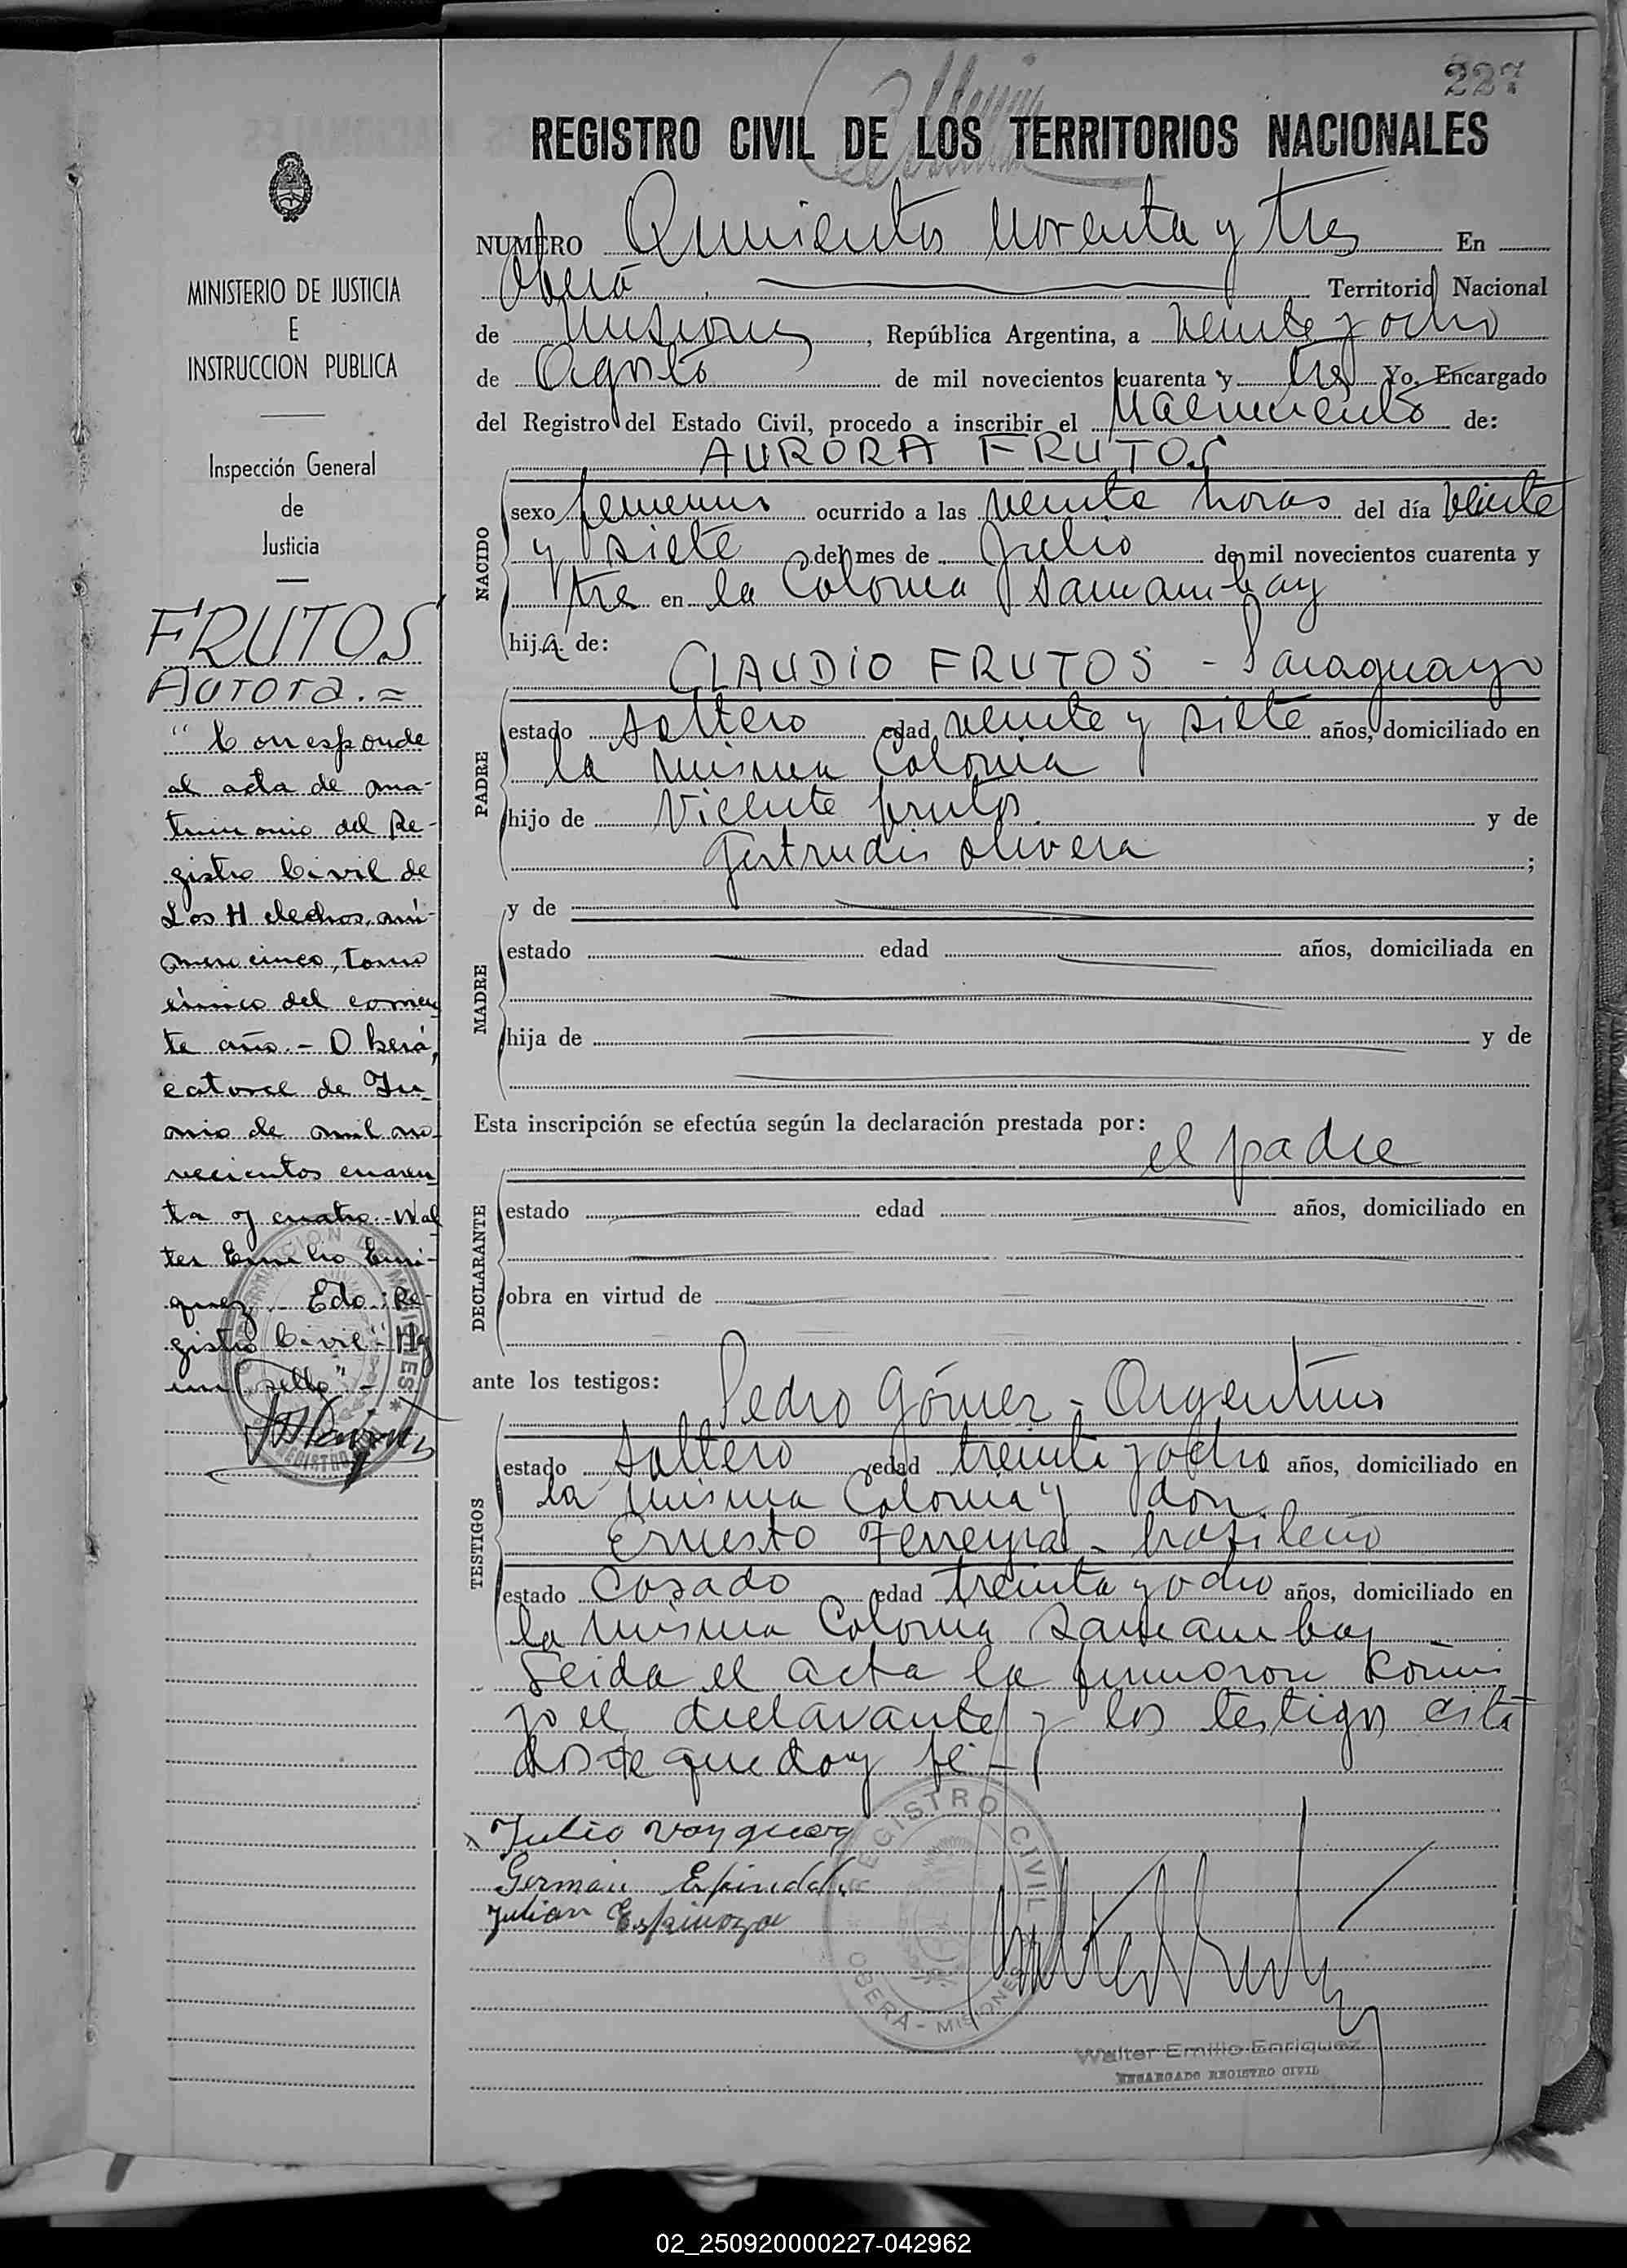 227
REGISTRO CIVIL DE LOS TERRITORIOS NACIONALES
NUMERO Quinientos Noventa y tres En
Oberá Territorio Nacional
de Misiones, República Argentina, a veinte y ocho
de Agosto de mil novecientos cuarenta y tres Yo, Encargado
del Registro del Estado Civil, procedo a inscribir el Nacimiento de:
AURORA FRUTOS
NACIDO
sexo femenino ocurrido a las veinte horas del día veinte
y siete del mes de Julio de mil novecientos cuarenta y
tres en la Colonia Samambay
hija de:
CLAUDIO FRUTOS - Paraguayo
PADRE
estado soltero edad veinte y siete años, domiciliado en
la misma Colonia
hijo de Vicente frutos y de
Gertrudis Olivera ;
MADRE
y de
estado edad años, domiciliada en
hija de y de
Esta inscripción se efectúa según la declaración prestada por:
el padre
DECLARANTE
estado edad años, domiciliado en
obra en virtud de
ante los testigos:
Pedro Gómez - Argentino
TESTIGOS
estado soltero edad treinta y ocho años, domiciliado en
la misma Colonia y don
Ernesto Ferreyra - brasileño
estado Casado edad treinta y ocho años, domiciliado en
la misma Colonia Samambay
Leida el acta la firmaron conmi
go el declarante y los testigos cita
dos de que doy fe -
Julio
German Espindola
Julian Espinoza
REGISTRO CIVIL
OBERA - MISIONES
Walter Emilio Enriquez
ENCARGADO REGISTRO CIVIL
MINISTERIO DE JUSTICIA
E
INSTRUCCION PUBLICA
Inspección General
de
Justicia
FRUTOS
Aurora.=
"Corresponde
al acta de ma-
trimonio del Re-
gistro Civil de
Los Helechos, nú-
mero cinco, tomo
único del corrien
te año.- Oberá,
catorce de Ju_
nio de mil no_
vecientos cuaren
ta y cuatro.-Wal
ter Emilio Enri-
quez. Edo. Re-
gistro Civil". Hay
un sello".-
02_250920000227-042962